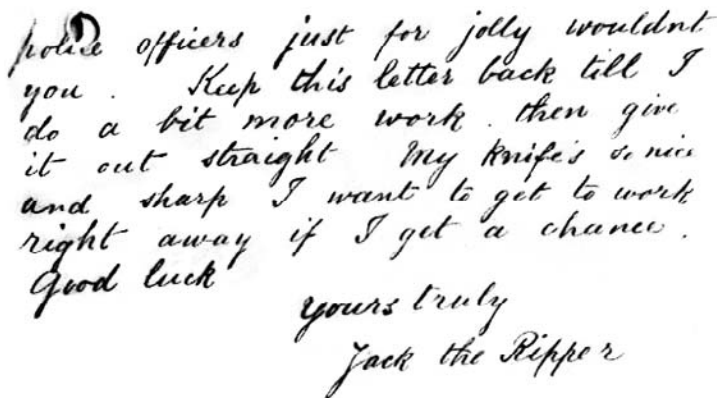 police officers just for jolly wouldnt
you . Keep this letter back till I
do a bit more work . then give
it out straight My knife's so nice
and sharp I want to get to work
right away if I get a chance .
Good luck
yours truly
Jack the Ripper